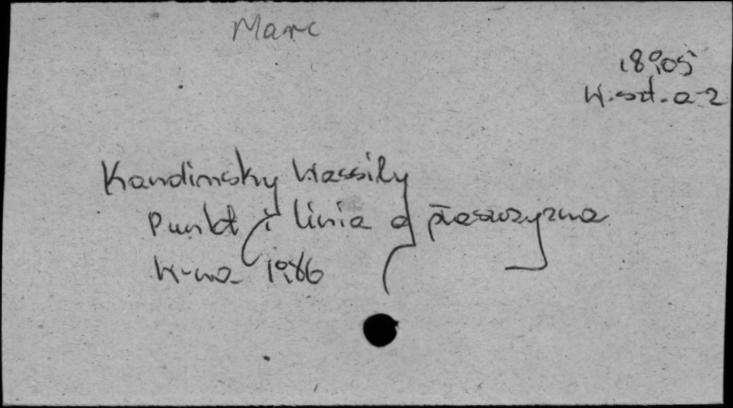 Marc
18905
W. szt. a-2
Kandinsky Wassily
Punkt i linia a płaszczyzna
W-wa 1986